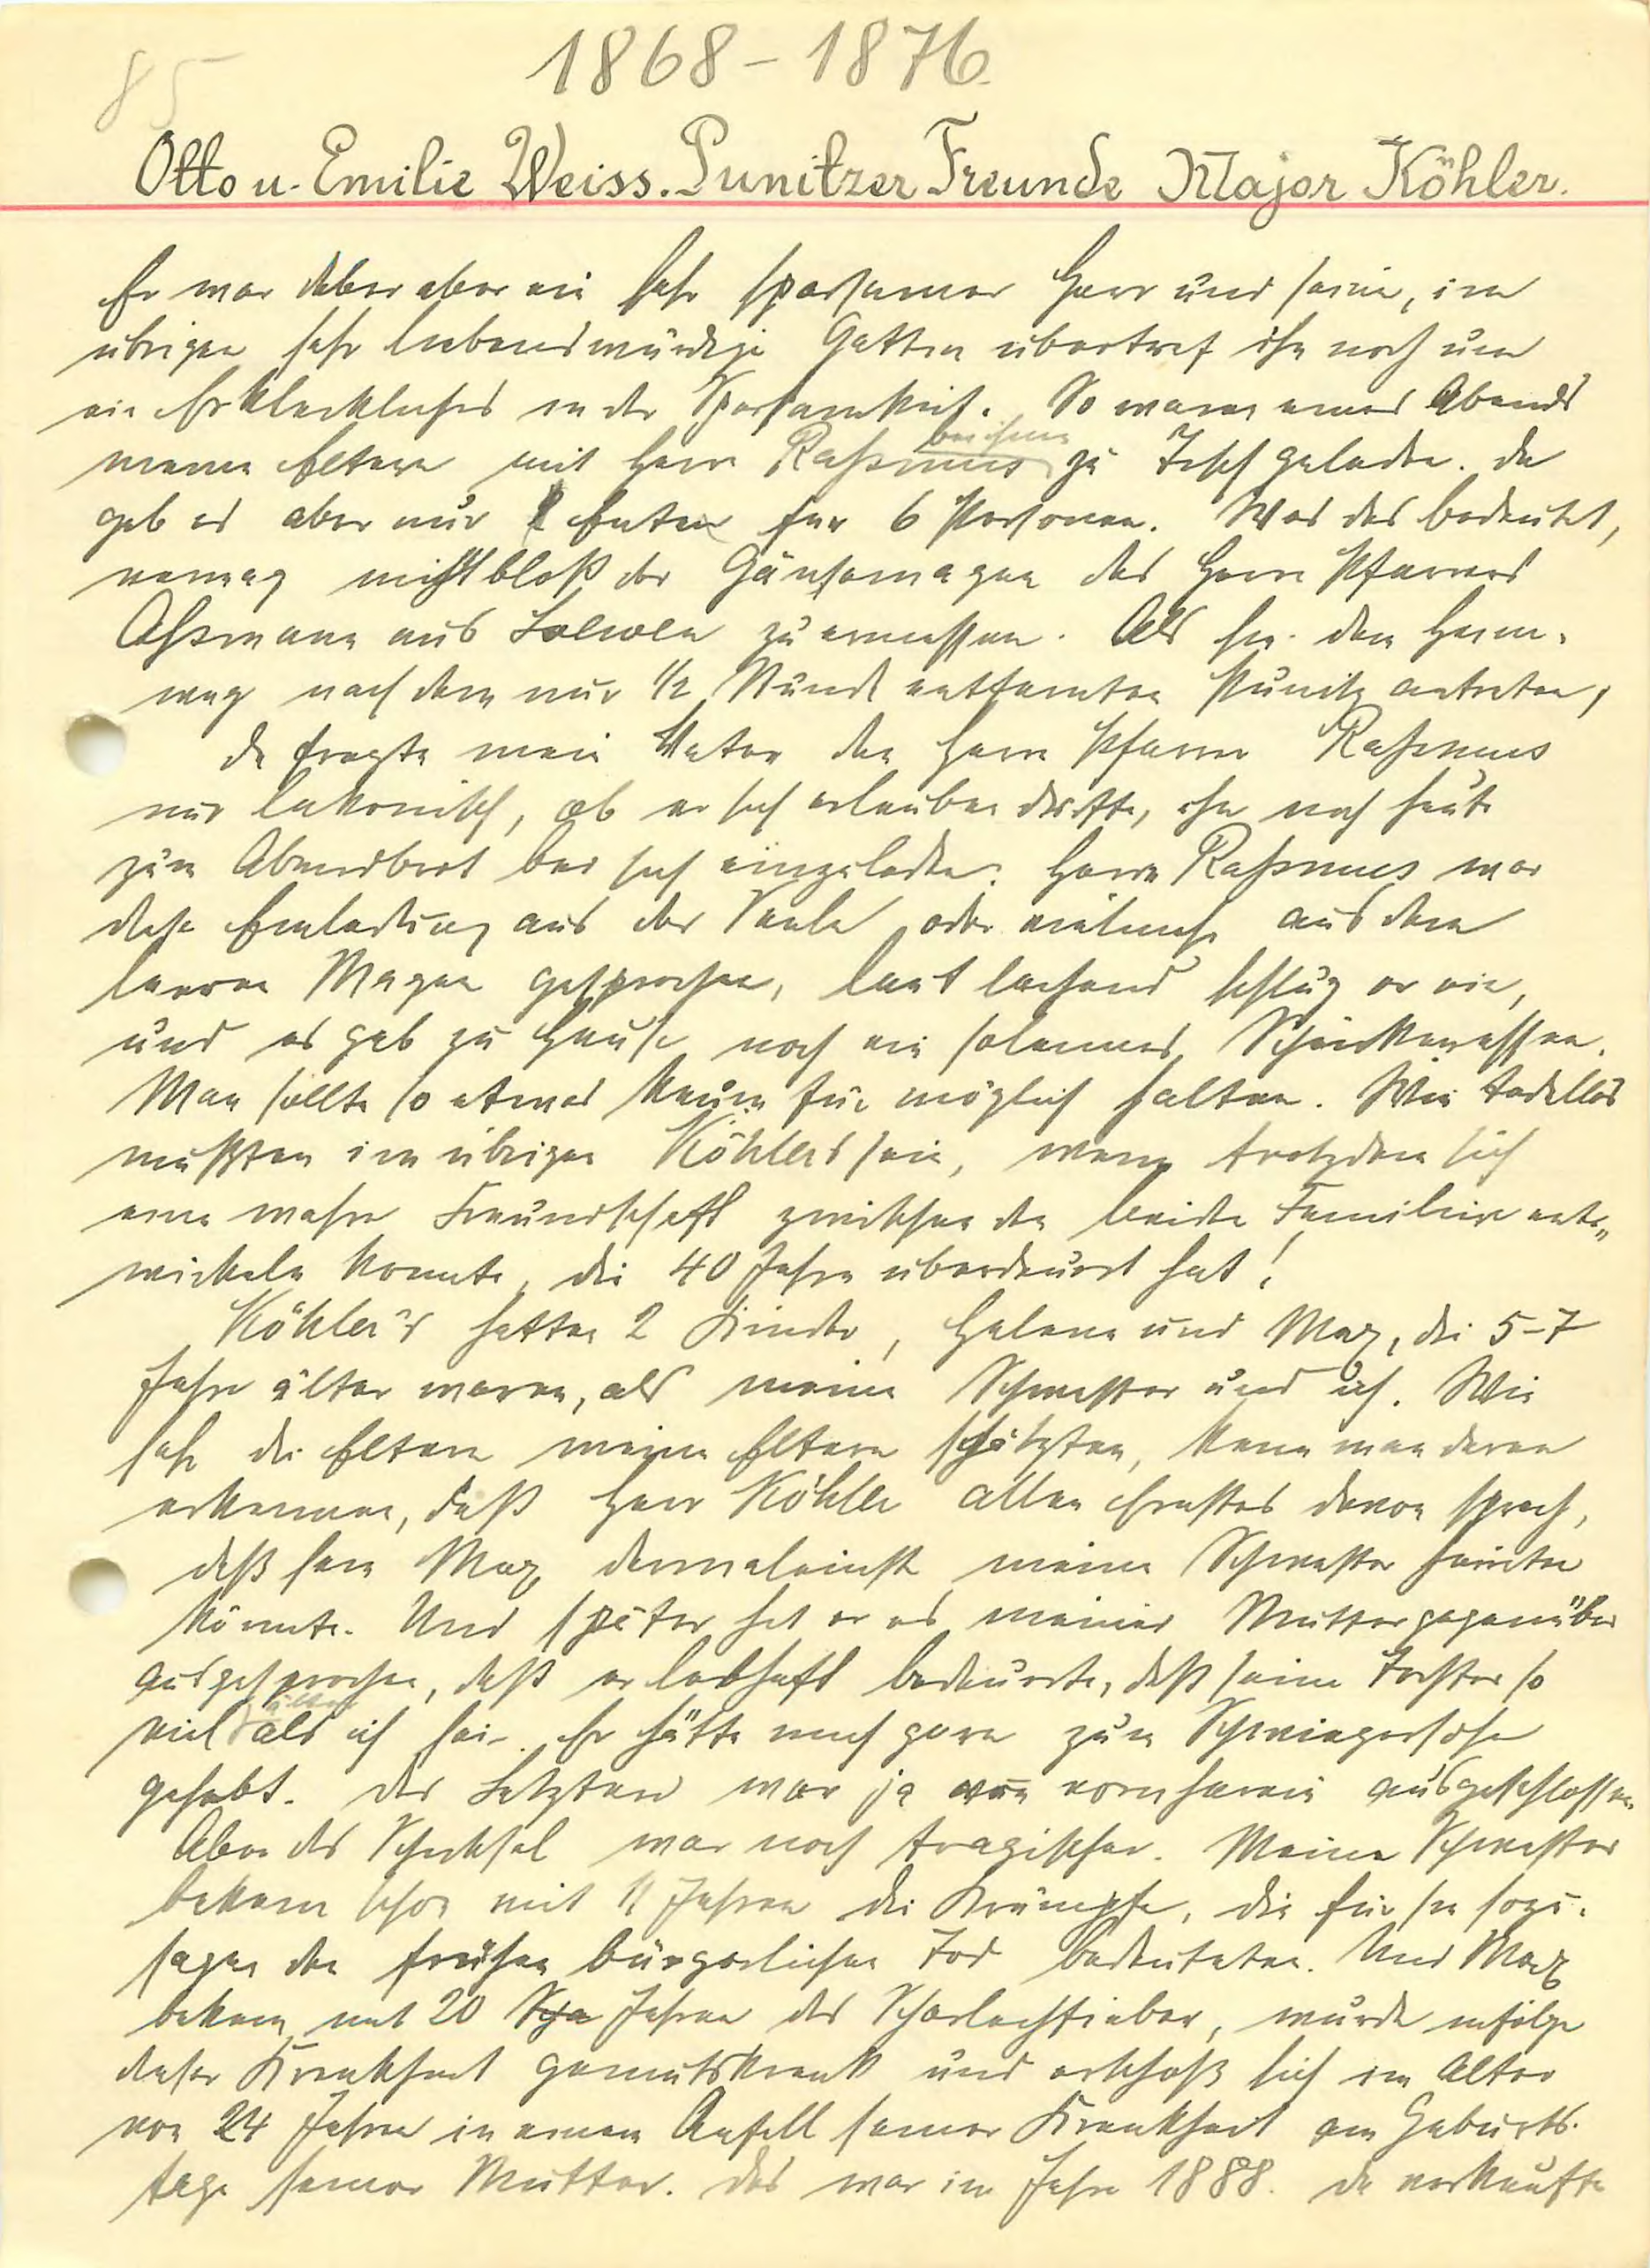 85
1868-1876.
Otto u. Emilie Weiss. Punitzer Freunde Major Köhler.
Er war dabei aber ein sehr sparsamer Herr und seine, im
übrigen sehr liebenswürdige Gattin übertraf ihn noch um
ein Erkleckliches in der Sparsamkeit. So waren eines Abends
bei ihnen
meine Eltern mit Herrn Raßmus zu Tisch geladen. Da
gab es aber nur Enten für 6 Personen. Was das bedeutet,
vermag nicht bloß der Gänsemagen des Herrn Pfarrers
Aßmann aus zu ermessen. Als sie den Heim-
weg nach dem nur 1/2 Stunde entfernten Punitz antraten,
da fragte mein Vater den Herrn Pfarrer Raßmus
nur lakonisch, ob er sich erlauben dürfte, ihn noch heute
zum Abendbrot bei sich einzuladen. Herrn Raßmus war
diese Einladung aus der Seele oder vielmehr aus dem
leeren Magen gesprochen, laut lachend schlug er ein,
und es gab zu Hause noch ein solennes Schinkenessen.
Man sollte so etwas kaum für möglich halten. Wie tadellos
mußten im übrigen Köhlers sein, wenn trotzdem sich
eine wahre Freundschaft zwischen den beiden Familien ent-
wickeln konnte, die 40 Jahre überdauert hat!
Köhler's hatten 2 Kinder, Helene und Max, die 5-7
Jahre älter waren, als meine Schwester und ich. Wie
sehr die Eltern meine Eltern schätzten, kann man daran
erkennen, daß Herr Köhler allen Ernstes davon sprach,
daß sein Max dermaleinst meine Schwester heiraten
könnte. Und später hat er es meiner Mutter gegenüber
ausgesprochen, daß er lebhaft bedauerte, daß seine Tochter so
älter
viel als ich sei. Er hätte mich gern zum Schwiegersohn
gehabt. Das Letztere war ja von vornherein ausgeschlossen.
Aber das Schicksal war noch tragischer. Meine Schwester
bekam schon mit 11 Jahren die Krämpfe, die für sie sozu-
sagen den frühen bürgerlichen Tod bedeuteten. Und Max
bekam mit 20 Jahren das Scharlachfieber, wurde infolge
dieser Krankheit gemütskrank und erschoß sich im Alter
von 24 Jahren in einem Anfall seiner Krankheit am Geburts-
tage seiner Mutter. Das war im Jahre 1888. Da verkaufte